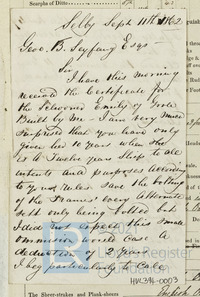 Scarphs of Ditto
Selby Sept 11th 1862
Geo. B. Seyfang Esqr
Sir
I have this morning
received the Certificate for
the Schooner Emily of Goole
Built by Me - I am very much
Surprised that you have only
given her 10 years when She
is A Twelve years Ship to all
intents and purposes According
to your Rules Save the bolting
of the Frames every Alternate
sett only being bolted but
I did not expect this Small
ommission would Cause A
deduction of 2 years
I beg particularly to Call
HEC346-0003
The Sheer-strakes and Plank-sheers